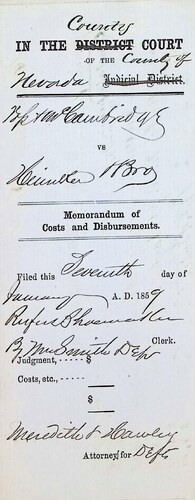 County
IN THE DISTRICT COURT
OF THE County of
Nevada Judicial District.
McCambridge
vs
& Bro
Memorandum of
Costs and Disbursements.
Filed this Seventh day of
January A. D. 1859
Rufus Shoemaker
Clerk.
By Wm Smith Dep
Judgment, - - - - - $
Costs, etc., - - - - -
$
Meredith & Hawley
Attorney for Defts